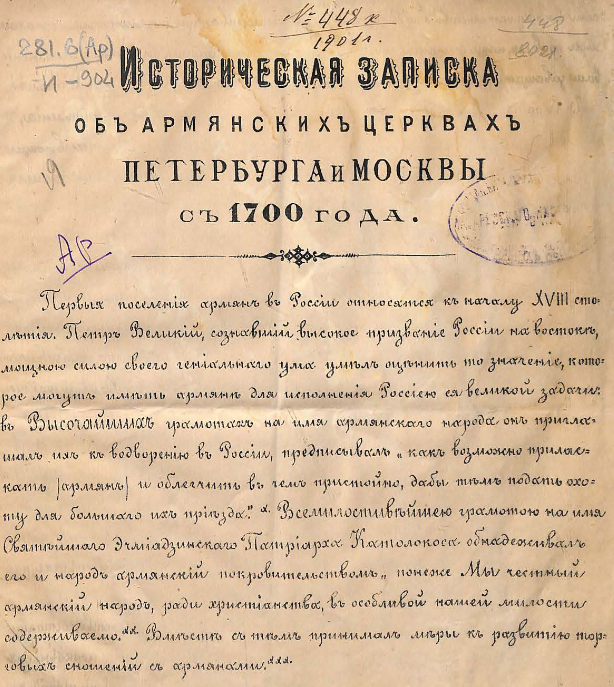 № 448 к
1901 г.
448
281.6(Ар)
И-904
Историческая Записка
объ армянскихъ церквахъ
Петербурга и Москвы
съ 1700 года.
Ар
Первыя поселенія армянъ въ Россіи относятся къ началу XVIII сто-
лѣтія. Петръ Великій, сознавшій высокое призваніе Россіи на востокѣ,
мощною силою своего геніальнаго ума умѣлъ оцѣнить то значеніе, кото-
рое могутъ имѣть армяне для исполненія Россіею ея великой задачи:
въ Высочайшихъ грамотахъ на имя армянскаго народа онъ пригла-
шалъ ихъ къ водворенію въ Россіи, предписывалъ „какъ возможно прилас-
кать /армянъ/ и облегчить въ чемъ пристойно, дабы тѣмъ подать охо-
ту для большаго ихъ пріѣзда." Всемилостивѣйшею грамотою на имя
Святѣйшаго Эчміадзинскаго Патріарха Католокоса обнадеживалъ
его и народъ армянскій покровительствомъ „понеже Мы честный
армянскій народъ, ради христіанства, въ особливой нашей милости
содерживаемъ. Вмѣстѣ съ тѣмъ принималъ мѣры къ развитію тор-
говыхъ сношеній съ армянами.